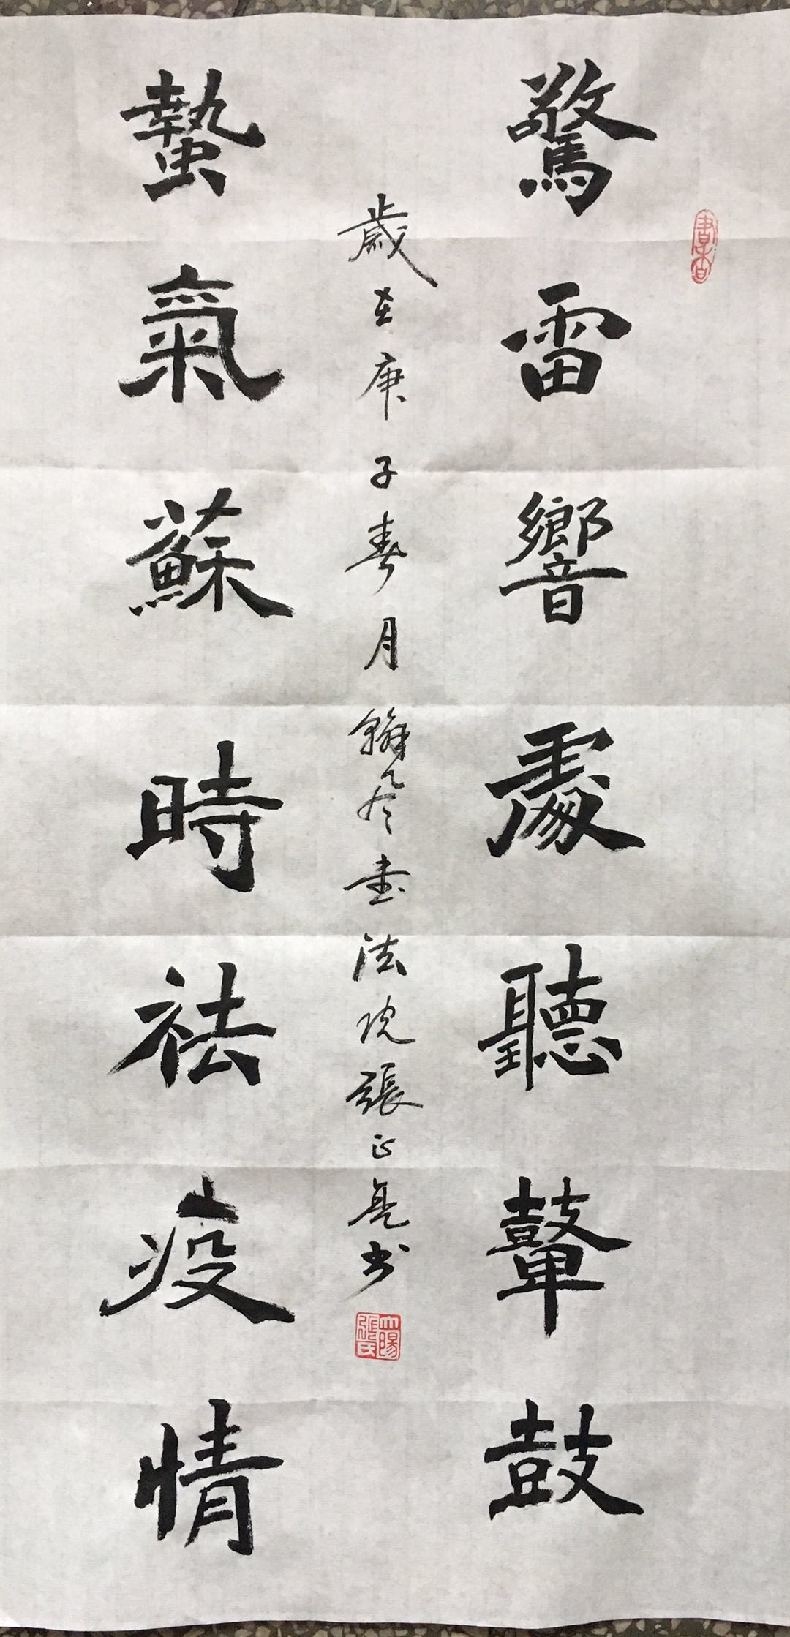 驚雷響處聽鼙鼓
蟄氣蘇時祛疫情
歲在庚子春月翰臣書法院張正亮書
書香